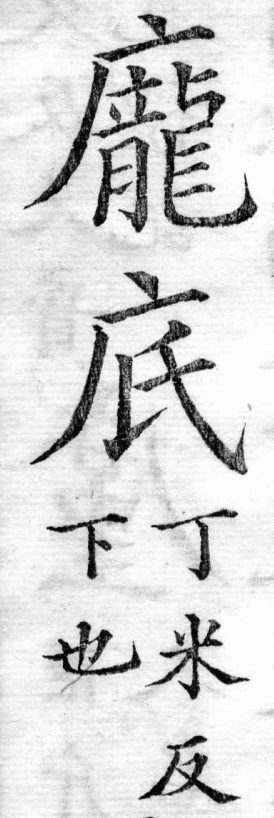 龐
底
丁米反
下也